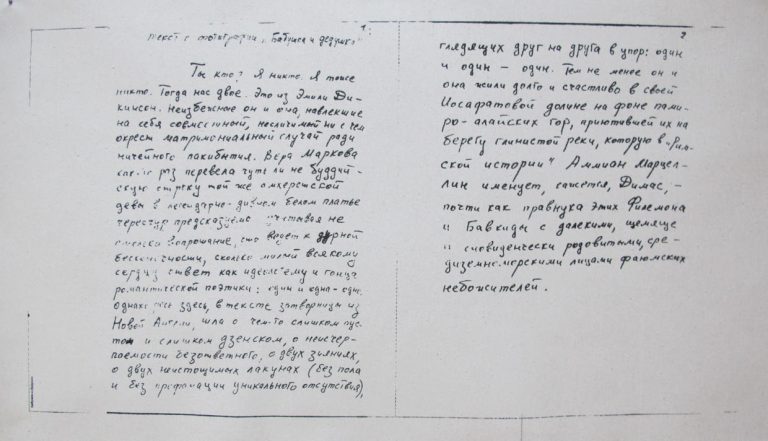 1.
текст с фотографии "Бабушка и дедушка"
Ты кто? Я никто. Я тоже
никто. Тогда нас двое. Это из Эмили Ди-
кинсон. Неизбежные он и она, навлекшие
на себя совместный, несличимый ни с чем
окрест матримониальный случай ради
ничейного пакибытия. Вера Маркова
как-то раз перевела чуть ли не буддий-
скую строку той же амхерстской
девы в легендарно-диком белом платье
чересчур предсказуемо
вопрошание, ведет к дурной
бесконечности, сколько милый всякому
сердцу ответ как идеологему и гонца
романтической поэтики: один и одна - одно.
Однако речь здесь, в тексте затворницы из
Новой Англии, шла о чем-то слишком пус-
том и слишком дзенском, о неисчер-
паемости безответного, о двух зияниях,
о двух неистощимых лакунах (без пола
и без профанации уникального отсутствия),
2
глядящих друг на друга в упор: один
и один - один. Тем не менее он и
она жили долго и счастливо в своей
Иосафатовой долине на фоне пами-
ро-алайских гор, приютившей их на
берегу глинистой реки, которую в "Рим-
ской истории" Аммиан Марцел-
лин именует, кажется, Димас, -
почти как правнука этих Филемона
и Бавкиды с далекими, щемяще
и сновиденчески родовитыми, сре-
диземноморскими лицами фаюмских
небожителей.